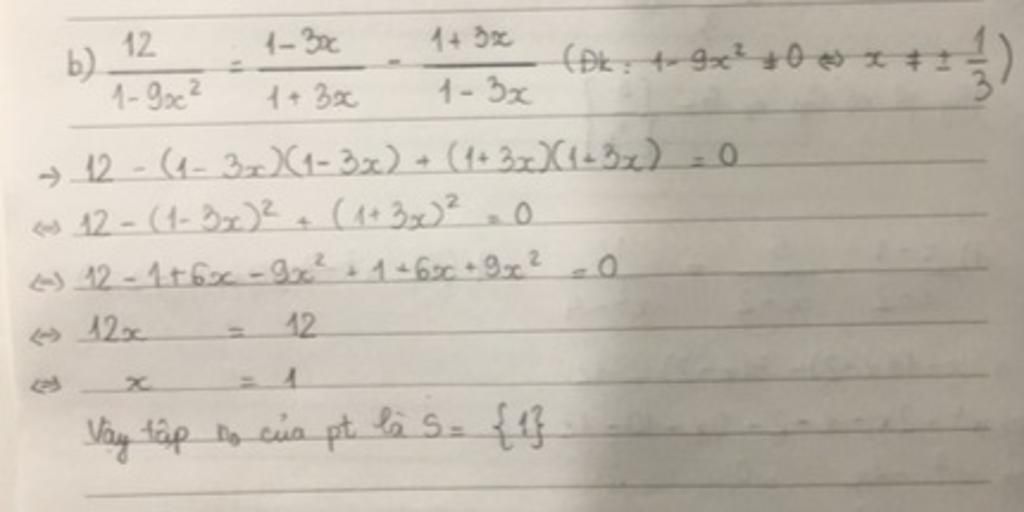 b) 12/(1-9x²) = (1-3x)/(1+3x) - (1+3x)/(1-3x) (Đk: 1-9x² ≠ 0 ⇔ x ≠ ± 1/3)
→ 12 - (1-3x)(1-3x) + (1+3x)(1+3x) = 0
⇔ 12 - (1-3x)² + (1+3x)² = 0
⇔ 12 - 1 + 6x - 9x² + 1 + 6x + 9x² = 0
⇔ 12x = 12
⇔ x = 1
Vậy tập no của pt là S = {1}